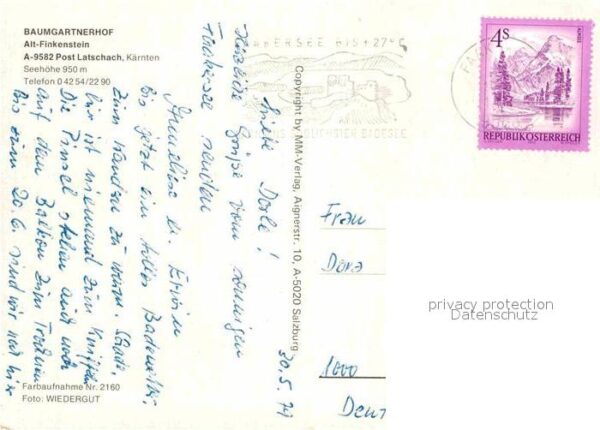 BAUMGARTNERHOF
Alt-Finkenstein
A-9582 Post Latschach, Kärnten
Seehöhe 950 m
Telefon 0 42 54/22 90
30.5.79
Liebe Dorle!
Herzliche Grüße vom sonnigen
Faakersee senden
Anneliese u. Erwin
Bis jetzt ein tolles Badewetter,
zum wandern zu warm. Schade,
hier ist niemand zum Kniffeln
Die Pinsel stehen auch noch
auf dem Balkon zum Trocknen
Bis zum 20.6. sind wir noch hier
Farbaufnahme Nr. 2160
Foto: WIEDERGUT
Copyright by MM-Verlag, Aignerstr. 10, A-5020 Salzburg
BIS +27°C
4S
ALMSEE
REPUBLIK ÖSTERREICH
Frau
Dora
1000
privacy protection
Datenschutz